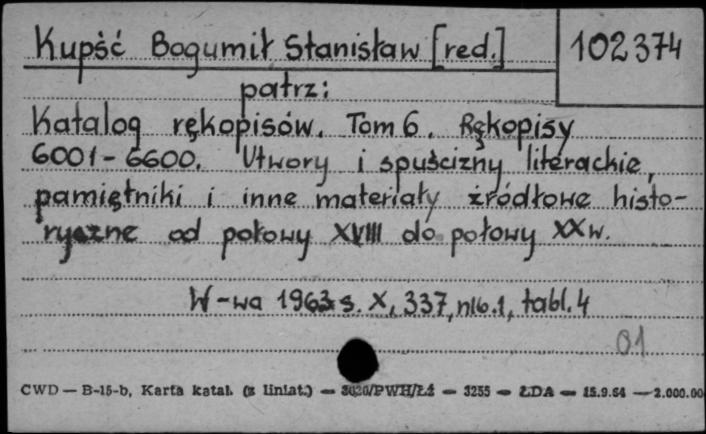 Kupść Bogumił Stanisław [red.] 102374
patrz:
Katalog rękopisów. Tom 6. Rękopisy
6001-6600. Utwory i spuścizny literackie,
pamiętniki i inne materiały źródłowe histo-
ryczne od połowy XVIII do połowy XX w.
W-wa 1963 s. X, 337, nlb. 1, tabl. 4
01
CWD — B-15-b, Karta katal. (z liniat.) — /PWH/Łź — 3255 — ŁDA — 15.9.54 — 2.000.00